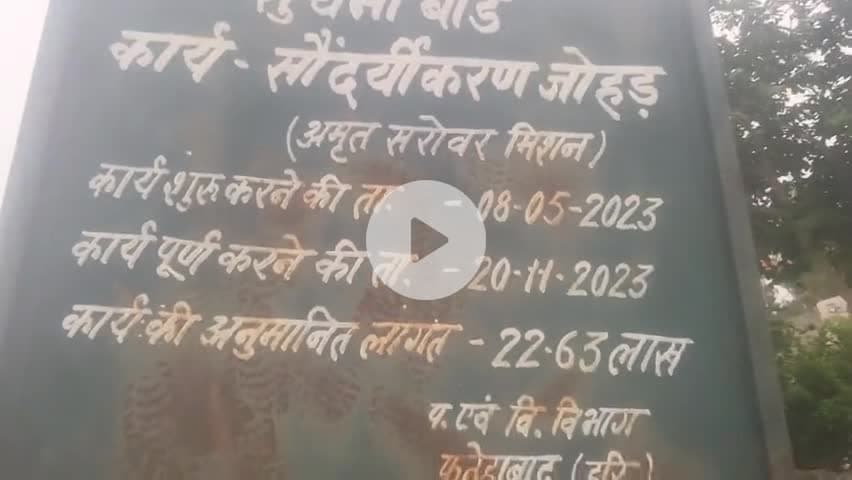 सूचना बोर्ड
कार्य - सौंदर्यीकरण जोहड़
(अमृत सरोवर मिशन)
कार्य शुरू करने की ता. - 08-05-2023
कार्य पूर्ण करने की ता. - 20-11-2023
कार्य की अनुमानित लागत - 22.63 लाख
प. एवं वि. विभाग
फतेहाबाद (हरि.)